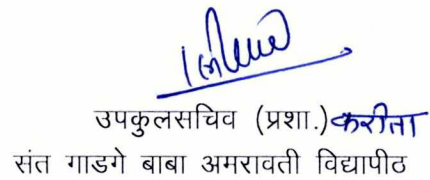 उपकुलसचिव (प्रशा.) करीता
संत गाडगे बाबा अमरावती विद्यापीठ